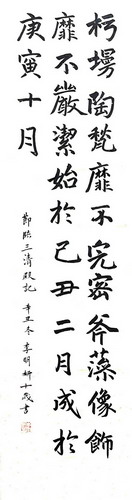 杇墁陶甃靡不完密斧藻像飾
靡不嚴潔始於己丑二月成於
庚寅十月
節臨三清殿記 辛丑冬 李明軒十歲書